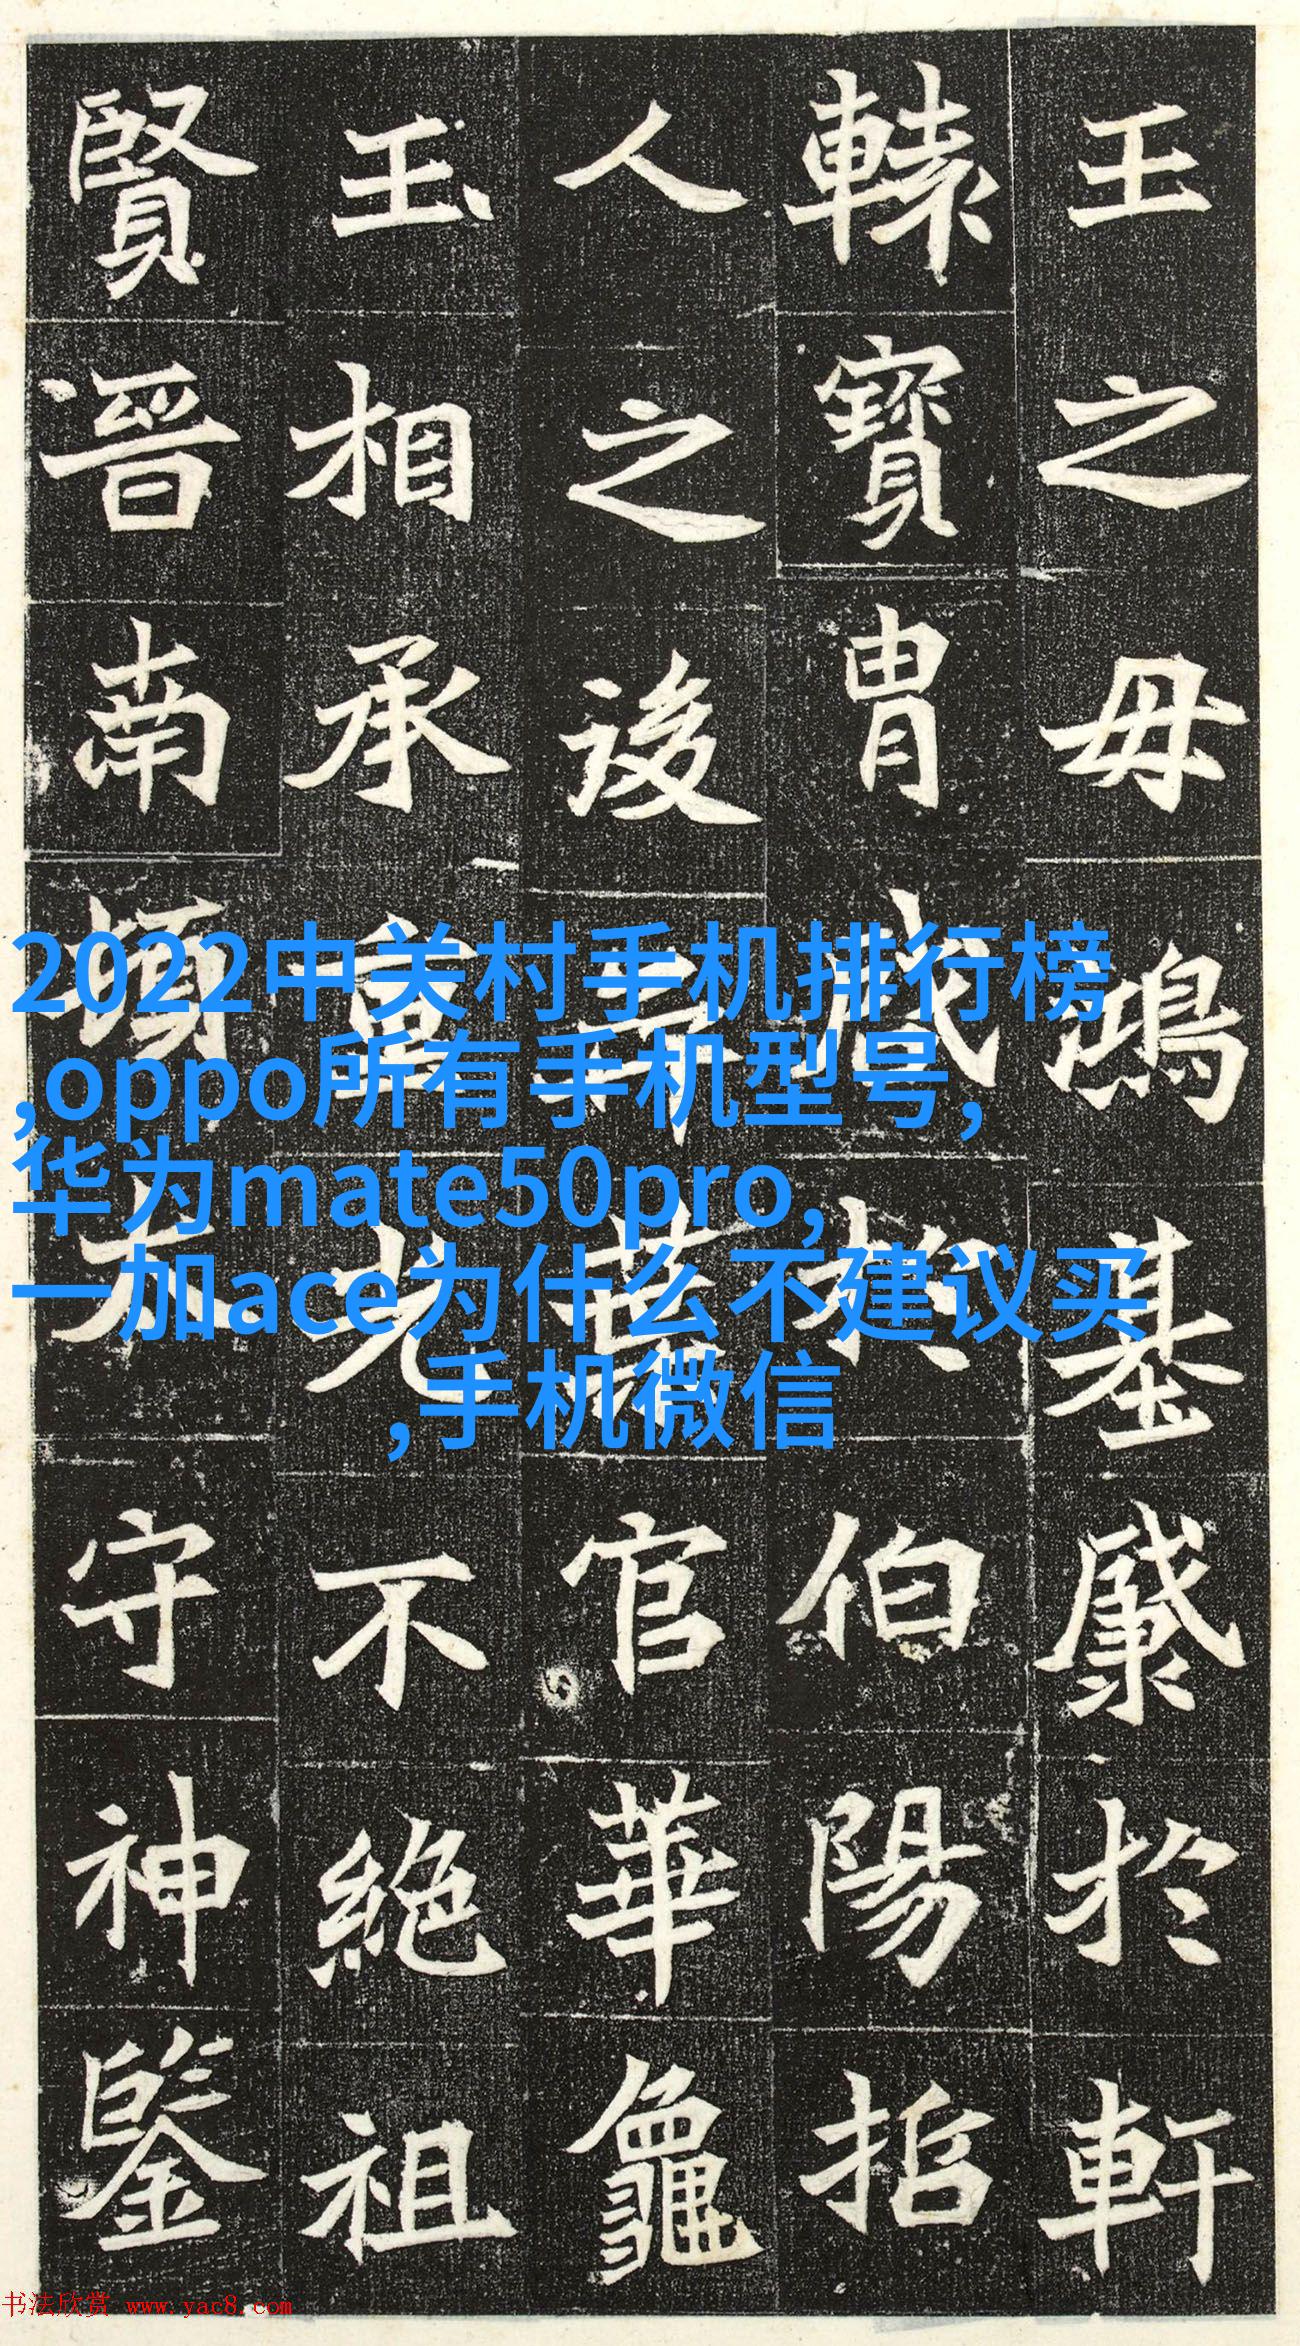 王之母鴻基於軒
轅寶胄於伯陽指
人之後葉官華龜
玉相承重光不絶祖
賢晉南頓太守神鑒
2022中关村手机排行榜
,oppo所有手机型号,
华为mate50pro,
一加ace为什么不建议买
,手机微信
书法欣赏 www.yac8.com